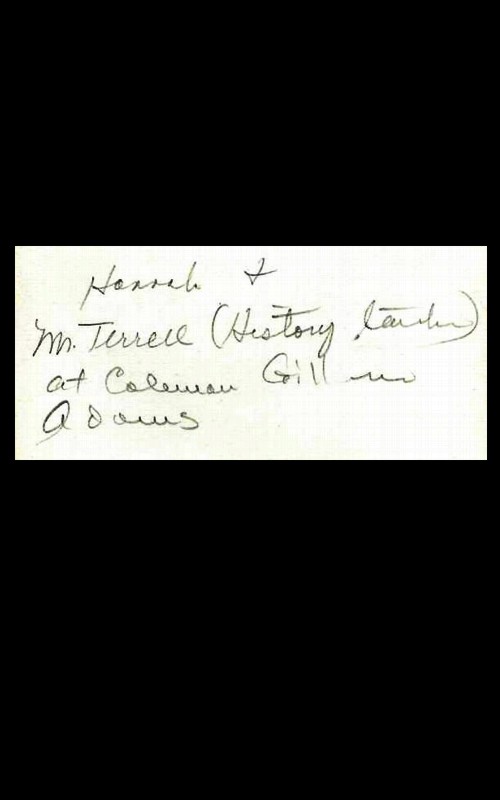 Hannah &
Mr. Terrell (History teacher)
at Coleman Gill
Adams